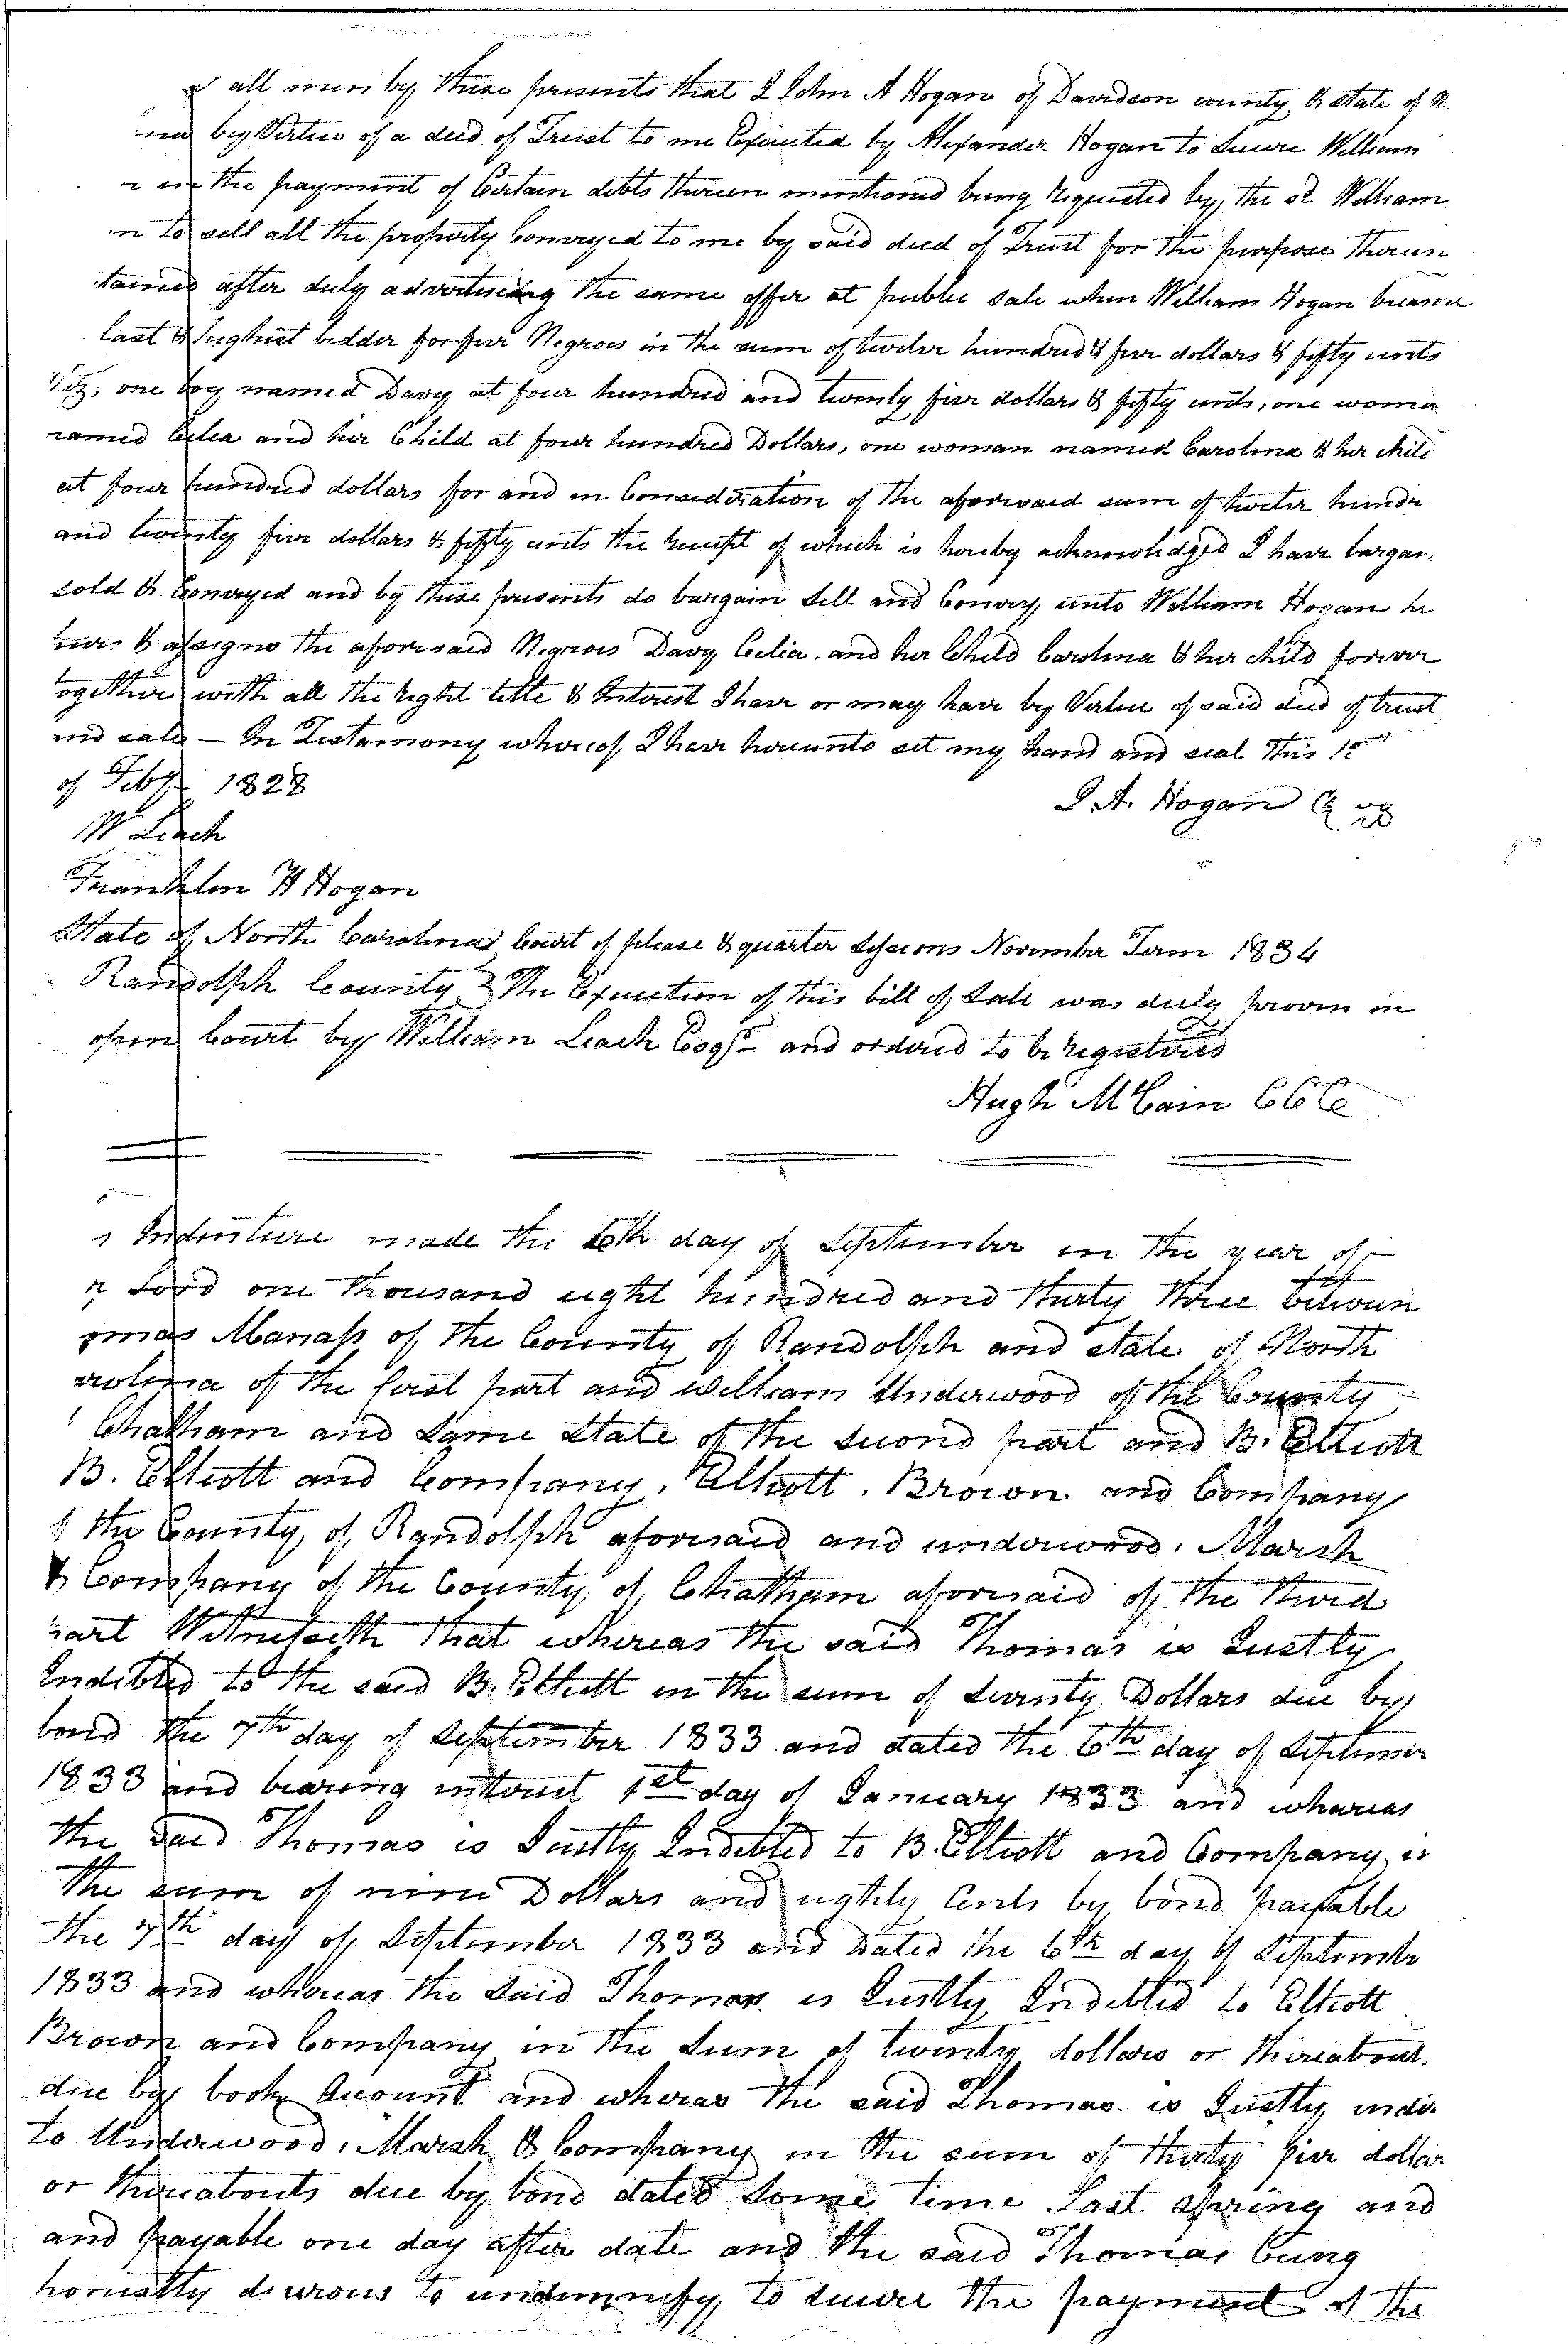 all men by these presents that I John A Hogan of Davidson county & state of N.
by Virtue of a deed of Trust to me Executed by Alexander Hogan to secure William
in the payment of Certain debts therein mentioned being requested by the sd William
n to sell all the property Conveyed to me by said deed of Trust for the purpose therein
tained after duly advertising the same offer at public sale when William Hogan became
last & highest bidder for five Negroes in the sum of twelve hundred & five dollars & fifty cents
Viz, one boy named Davy at four hundred and twenty five dollars & fifty cents, one woma
named Celia and her Child at four hundred Dollars, one woman named Carolina & her chile
at four hundred dollars for and in Consideration of the aforesaid sum of twelve hundr
and twenty five dollars & fifty cents the receipt of which is hereby acknowledged I have bargai
sold & Conveyed and by these presents do bargain sell and Convey unto William Hogan he
heirs & assigns the aforesaid Negroes Davy Celia and her Child Carolina & her child forever
ogether with all the right title & Interest I have or may have by Virtue of said deed of trust
and sale — In Testamony whereof I have hereunto set my hand and seal this
of Feby 1828
J A. Hogan
W Leach
Franklin H Hogan
State of North Carolina Court of please & quarter Sessions November Term 1834
Randolph County The Execution of this bill of Sale was duly proven in
open Court by William Leach Esqr and ordered to be registered
Hugh McCain CCC
Indenture made the 6th day of September in the year of
r Lord one thousand eight hundred and thirty three between
omas Manass of the County of Randolph and state of North
arolina of the first part and William Underwood of the County
Chatham and same State of the second part and B. Elliott
B. Elliott and Company, Elliott, Brown and Company
f the County of Randolph aforesaid and underwood, Marsh
& Company of the County of Chatham aforesaid of the third
part Witnesseth that whereas the said Thomas is Justly
Indebted to the said B. Elliott in the sum of Dollars due by
bond the 7th day of September 1833 and dated the 6th day of Septemer
1833 and bearing interest 1st day of January 1833 and whareas
the said Thomas is Justly Indebted to B. Elliott and Company in
the sum of nine Dollars and eighty Cents by bond payable
the 7th day of September 1833 and Dated the 6th day of Septembe
1833 and whereas the Said Thomas is Justly Indebted to Elliott
Brown and Company in the Sum of twenty dollars or thereabout.
due by book Account and wheras the said Thomas is Justly inde
to Underwood, Marsh & Company in the sum of thirty five dollar
or thereabouts due by bond dated some time last spring and
and payable one day after date and the said Thomas being
honestly desirous to undemnify to secure the payment of the